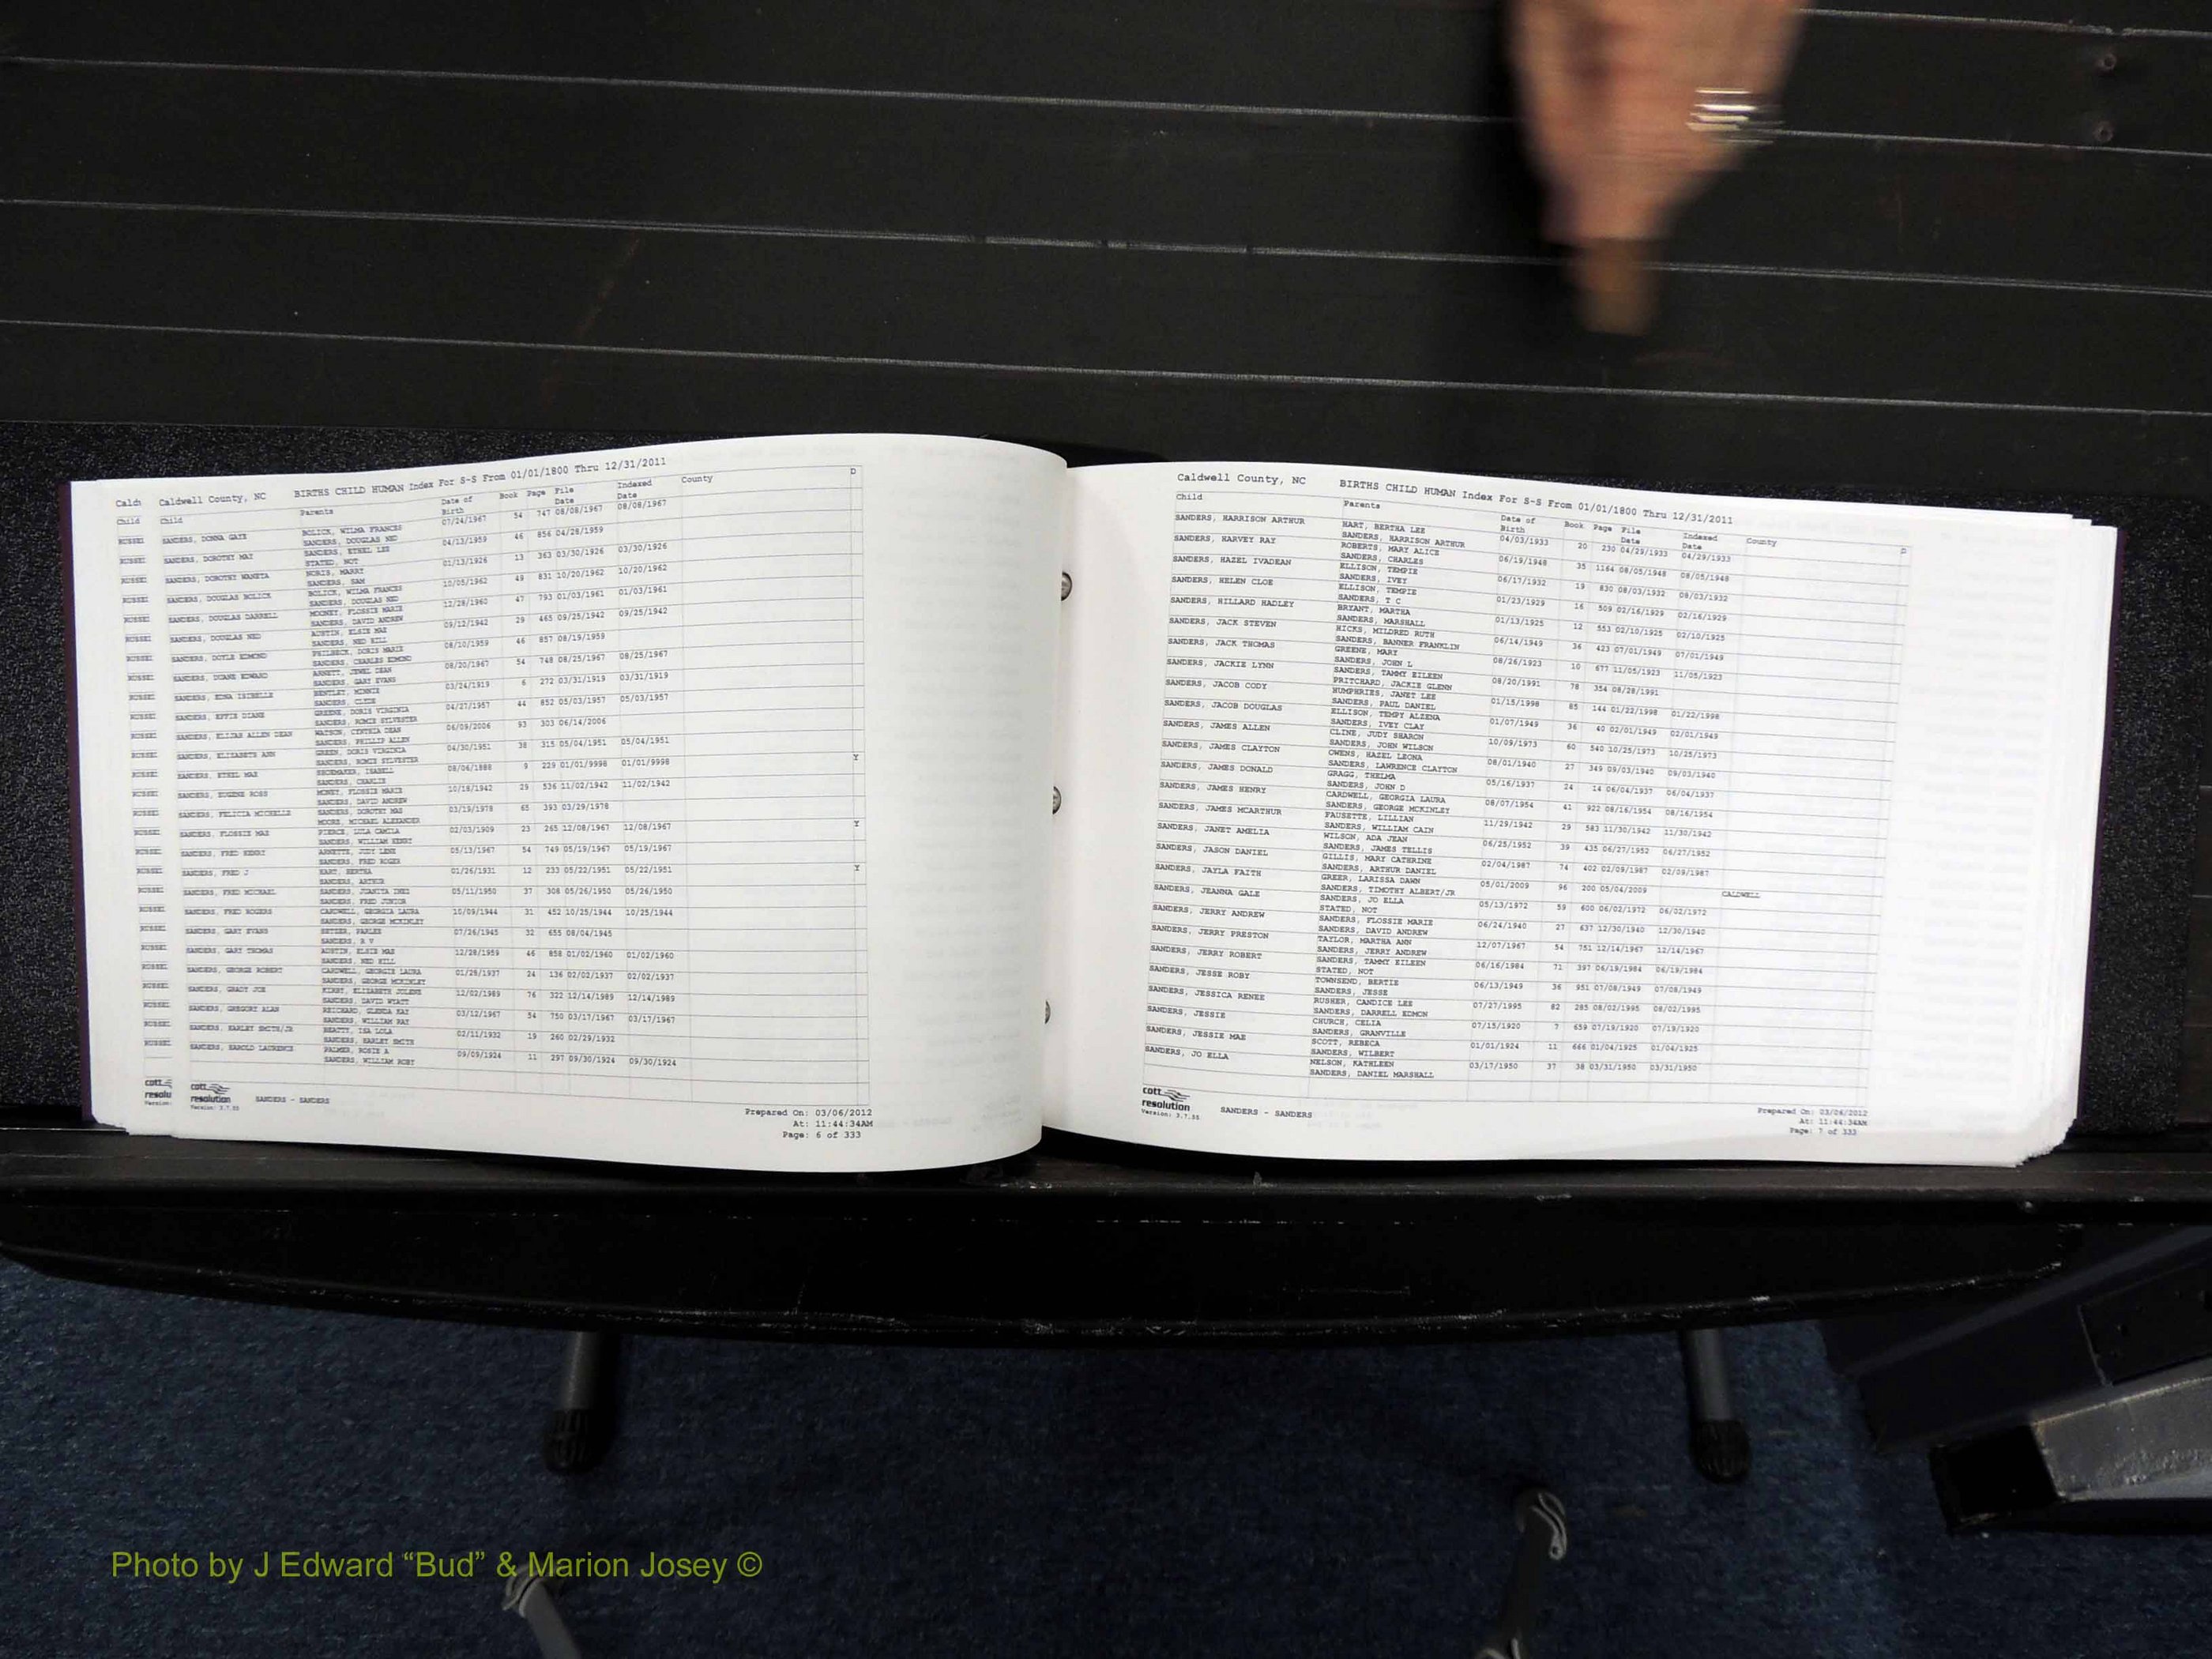 Caldwell County, NC BIRTHS CHILD HUMAN Index For S-S From 01/01/1800 Thru 12/31/2011
Child Parents Date of Birth Book Page File Date Indexed Date County D
SANDERS, DONNA GAYE BOLICK, WILMA FRANCES 07/24/1967 54 747 08/08/1967 08/08/1967
SANDERS, DOUGLAS NED
SANDERS, DOROTHY MAY SANDERS, ETHEL LEE 04/13/1959 46 856 04/28/1959
STATED, NOT
SANDERS, DOROTHY WANETA NORIS, MARRY 01/13/1926 13 363 03/30/1926 03/30/1926
SANDERS, SAM
SANDERS, DOUGLAS BOLICK BOLICK, WILMA FRANCES 10/05/1962 49 831 10/20/1962 10/20/1962
SANDERS, DOUGLAS NED
SANDERS, DOUGLAS DARRELL MOONEY, FLOSSIE MARIE 12/28/1960 47 793 01/03/1961 01/03/1961
SANDERS, DAVID ANDREW
SANDERS, DOUGLAS NED AUSTIN, ELSIE MAE 09/12/1942 29 465 09/25/1942 09/25/1942
SANDERS, NED HILL
SANDERS, DOYLE EDMOND PHILBECK, DORIS MARIE 08/10/1959 46 857 08/19/1959
SANDERS, CHARLES EDMOND
SANDERS, DUANE EDWARD ARNETT, JEWEL DEAN 08/20/1967 54 748 08/25/1967 08/25/1967
SANDERS, GARY EVANS
SANDERS, EDNA ISIBELLE BENTLEY, MINNIE 03/24/1919 6 272 03/31/1919 03/31/1919
SANDERS, CLYDE
SANDERS, EFFIE DIANE GREENE, DORIS VIRGINIA 04/27/1957 44 852 05/03/1957 05/03/1957
SANDERS, ROMIE SYLVESTER
SANDERS, ELIJAH ALLEN DEAN WATSON, CYNTHIA DEAN 06/09/2006 93 303 06/14/2006
SANDERS, PHILLIP ALLEN
SANDERS, ELIZABETH ANN GREEN, DORIS VIRGINIA 04/30/1951 38 315 05/04/1951 05/04/1951
SANDERS, ROMIE SYLVESTER
SANDERS, ETHEL MAE SHOEMAKER, ISABELL 08/06/1888 9 229 01/01/9998 01/01/9998 Y
SANDERS, CHARLIE
SANDERS, EUGENE ROSS MONEY, FLOSSIE MARIE 10/18/1942 29 536 11/02/1942 11/02/1942
SANDERS, DAVID ANDREW
SANDERS, FELICIA MICHELLE SANDERS, DOROTHY MAE 03/19/1978 65 393 03/29/1978
MOORE, MICHAEL ALEXANDER
SANDERS, FLOSSIE MAE PIERCE, LULA CAMILA 02/03/1909 23 265 12/08/1967 12/08/1967 Y
SANDERS, WILLIAM HENRY
SANDERS, FRED HENRY ARNETTE, JUDY LENE 05/13/1967 54 749 05/19/1967 05/19/1967
SANDERS, FRED ROGER
SANDERS, FRED J HART, BERTHA 01/26/1931 12 233 05/22/1951 05/22/1951 Y
SANDERS, ARTHUR
SANDERS, FRED MICHAEL SANDERS, JUANITA INEZ 05/11/1950 37 308 05/26/1950 05/26/1950
SANDERS, FRED JUNIOR
SANDERS, FRED ROGERS CARDWELL, GEORGIA LAURA 10/09/1944 31 452 10/25/1944 10/25/1944
SANDERS, GEORGE MCKINLEY
SANDERS, GARY EVANS SETZER, PARLEE 07/26/1945 32 655 08/04/1945
SANDERS, R V
SANDERS, GARY THOMAS AUSTIN, ELSIE MAE 12/28/1959 46 858 01/02/1960 01/02/1960
SANDERS, NED HILL
SANDERS, GEORGE ROBERT CARDWELL, GEORGIE LAURA 01/28/1937 24 136 02/02/1937 02/02/1937
SANDERS, GEORGE MCKINLEY
SANDERS, GRADY JOE KIRBY, ELIZABETH JOLENE 12/02/1989 76 322 12/14/1989 12/14/1989
SANDERS, DAVID WYATT
SANDERS, GREGORY ALAN REICHARD, GLENDA KAY 03/12/1967 54 750 03/17/1967 03/17/1967
SANDERS, WILLIAM RAY
SANDERS, HARLEY SMITH/JR BEATTY, IRA LOLA 02/11/1932 19 260 02/29/1932
SANDERS, HARLEY SMITH
SANDERS, HAROLD LAURENCE PALMER, ROSIE A 09/09/1924 11 297 09/30/1924 09/30/1924
SANDERS, WILLIAM ROBY
cott
resolution SANDERS - SANDERS
Version: 3.7.55
Prepared On: 03/06/2012
At: 11:44:34AM
Page: 6 of 333
Caldwell County, NC BIRTHS CHILD HUMAN Index For S-S From 01/01/1800 Thru 12/31/2011
Child Parents Date of Birth Book Page File Date Indexed Date County D
SANDERS, HARRISON ARTHUR HART, BERTHA LEE 04/03/1933 20 230 04/29/1933 04/29/1933
SANDERS, HARRISON ARTHUR
SANDERS, HARVEY RAY ROBERTS, MARY ALICE 06/19/1948 35 1164 08/05/1948 08/05/1948
SANDERS, CHARLES
SANDERS, HAZEL IVADEAN ELLISON, TEMPIE 06/17/1932 19 830 08/03/1932 08/03/1932
SANDERS, IVEY
SANDERS, HELEN CLOE ELLISON, TEMPIE 01/23/1929 16 509 02/16/1929 02/16/1929
SANDERS, T C
SANDERS, HILLARD HADLEY BRYANT, MARTHA 01/13/1925 12 553 02/10/1925 02/10/1925
SANDERS, MARSHALL
SANDERS, JACK STEVEN HICKS, MILDRED RUTH 06/14/1949 36 423 07/01/1949 07/01/1949
SANDERS, BANNER FRANKLIN
SANDERS, JACK THOMAS GREENE, MARY 08/26/1923 10 677 11/05/1923 11/05/1923
SANDERS, JOHN L
SANDERS, JACKIE LYNN SANDERS, TAMMY EILEEN 08/20/1991 78 354 08/28/1991
PRITCHARD, JACKIE GLENN
SANDERS, JACOB CODY HUMPHRIES, JANET LEE 01/15/1998 85 144 01/22/1998 01/22/1998
SANDERS, PAUL DANIEL
SANDERS, JACOB DOUGLAS ELLISON, TEMPY ALZENA 01/07/1949 36 40 02/01/1949 02/01/1949
SANDERS, IVEY CLAY
SANDERS, JAMES ALLEN CLINE, JUDY SHARON 10/09/1973 60 540 10/25/1973 10/25/1973
SANDERS, JOHN WILSON
SANDERS, JAMES CLAYTON OWENS, HAZEL LEONA 08/01/1940 27 349 09/03/1940 09/03/1940
SANDERS, LAWRENCE CLAYTON
SANDERS, JAMES DONALD GRAGG, THELMA 05/16/1937 24 14 06/04/1937 06/04/1937
SANDERS, JOHN D
SANDERS, JAMES HENRY CARDWELL, GEORGIA LAURA 08/07/1954 41 922 08/16/1954 08/16/1954
SANDERS, GEORGE MCKINLEY
SANDERS, JAMES MCARTHUR FAUSETTE, LILLIAN 11/29/1942 29 583 11/30/1942 11/30/1942
SANDERS, WILLIAM CAIN
SANDERS, JANET AMELIA WILSON, ADA JEAN 06/25/1952 39 435 06/27/1952 06/27/1952
SANDERS, JAMES TELLIS
SANDERS, JASON DANIEL GILLIS, MARY CATHRINE 02/04/1987 74 402 02/09/1987 02/09/1987
SANDERS, ARTHUR DANIEL
SANDERS, JAYLA FAITH GREER, LARISSA DAWN 05/01/2009 96 200 05/04/2009 CALDWELL
SANDERS, TIMOTHY ALBERT/JR
SANDERS, JEANNA GALE SANDERS, JO ELLA 05/13/1972 59 600 06/02/1972 06/02/1972
STATED, NOT
SANDERS, JERRY ANDREW SANDERS, FLOSSIE MARIE 06/24/1940 27 637 12/30/1940 12/30/1940
SANDERS, DAVID ANDREW
SANDERS, JERRY PRESTON TAYLOR, MARTHA ANN 12/07/1967 54 751 12/14/1967 12/14/1967
SANDERS, JERRY ANDREW
SANDERS, JERRY ROBERT SANDERS, TAMMY EILEEN 06/16/1984 71 397 06/19/1984 06/19/1984
STATED, NOT
SANDERS, JESSE ROBY TOWNSEND, BERTIE 06/13/1949 36 951 07/08/1949 07/08/1949
SANDERS, JESSE
SANDERS, JESSICA RENEE RUSHER, CANDICE LEE 07/27/1995 82 285 08/02/1995 08/02/1995
SANDERS, DARRELL EDMON
SANDERS, JESSIE CHURCH, CELIA 07/15/1920 7 659 07/19/1920 07/19/1920
SANDERS, GRANVILLE
SANDERS, JESSIE MAE SCOTT, REBECA 01/01/1924 11 666 01/04/1925 01/04/1925
SANDERS, WILBERT
SANDERS, JO ELLA NELSON, KATHLEEN 03/17/1950 37 38 03/31/1950 03/31/1950
SANDERS, DANIEL MARSHALL
cott
resolution SANDERS - SANDERS
Version: 3.7.55
Prepared On: 03/06/2012
At: 11:44:34AM
Page: 7 of 333
Photo by J Edward “Bud” & Marion Josey ©